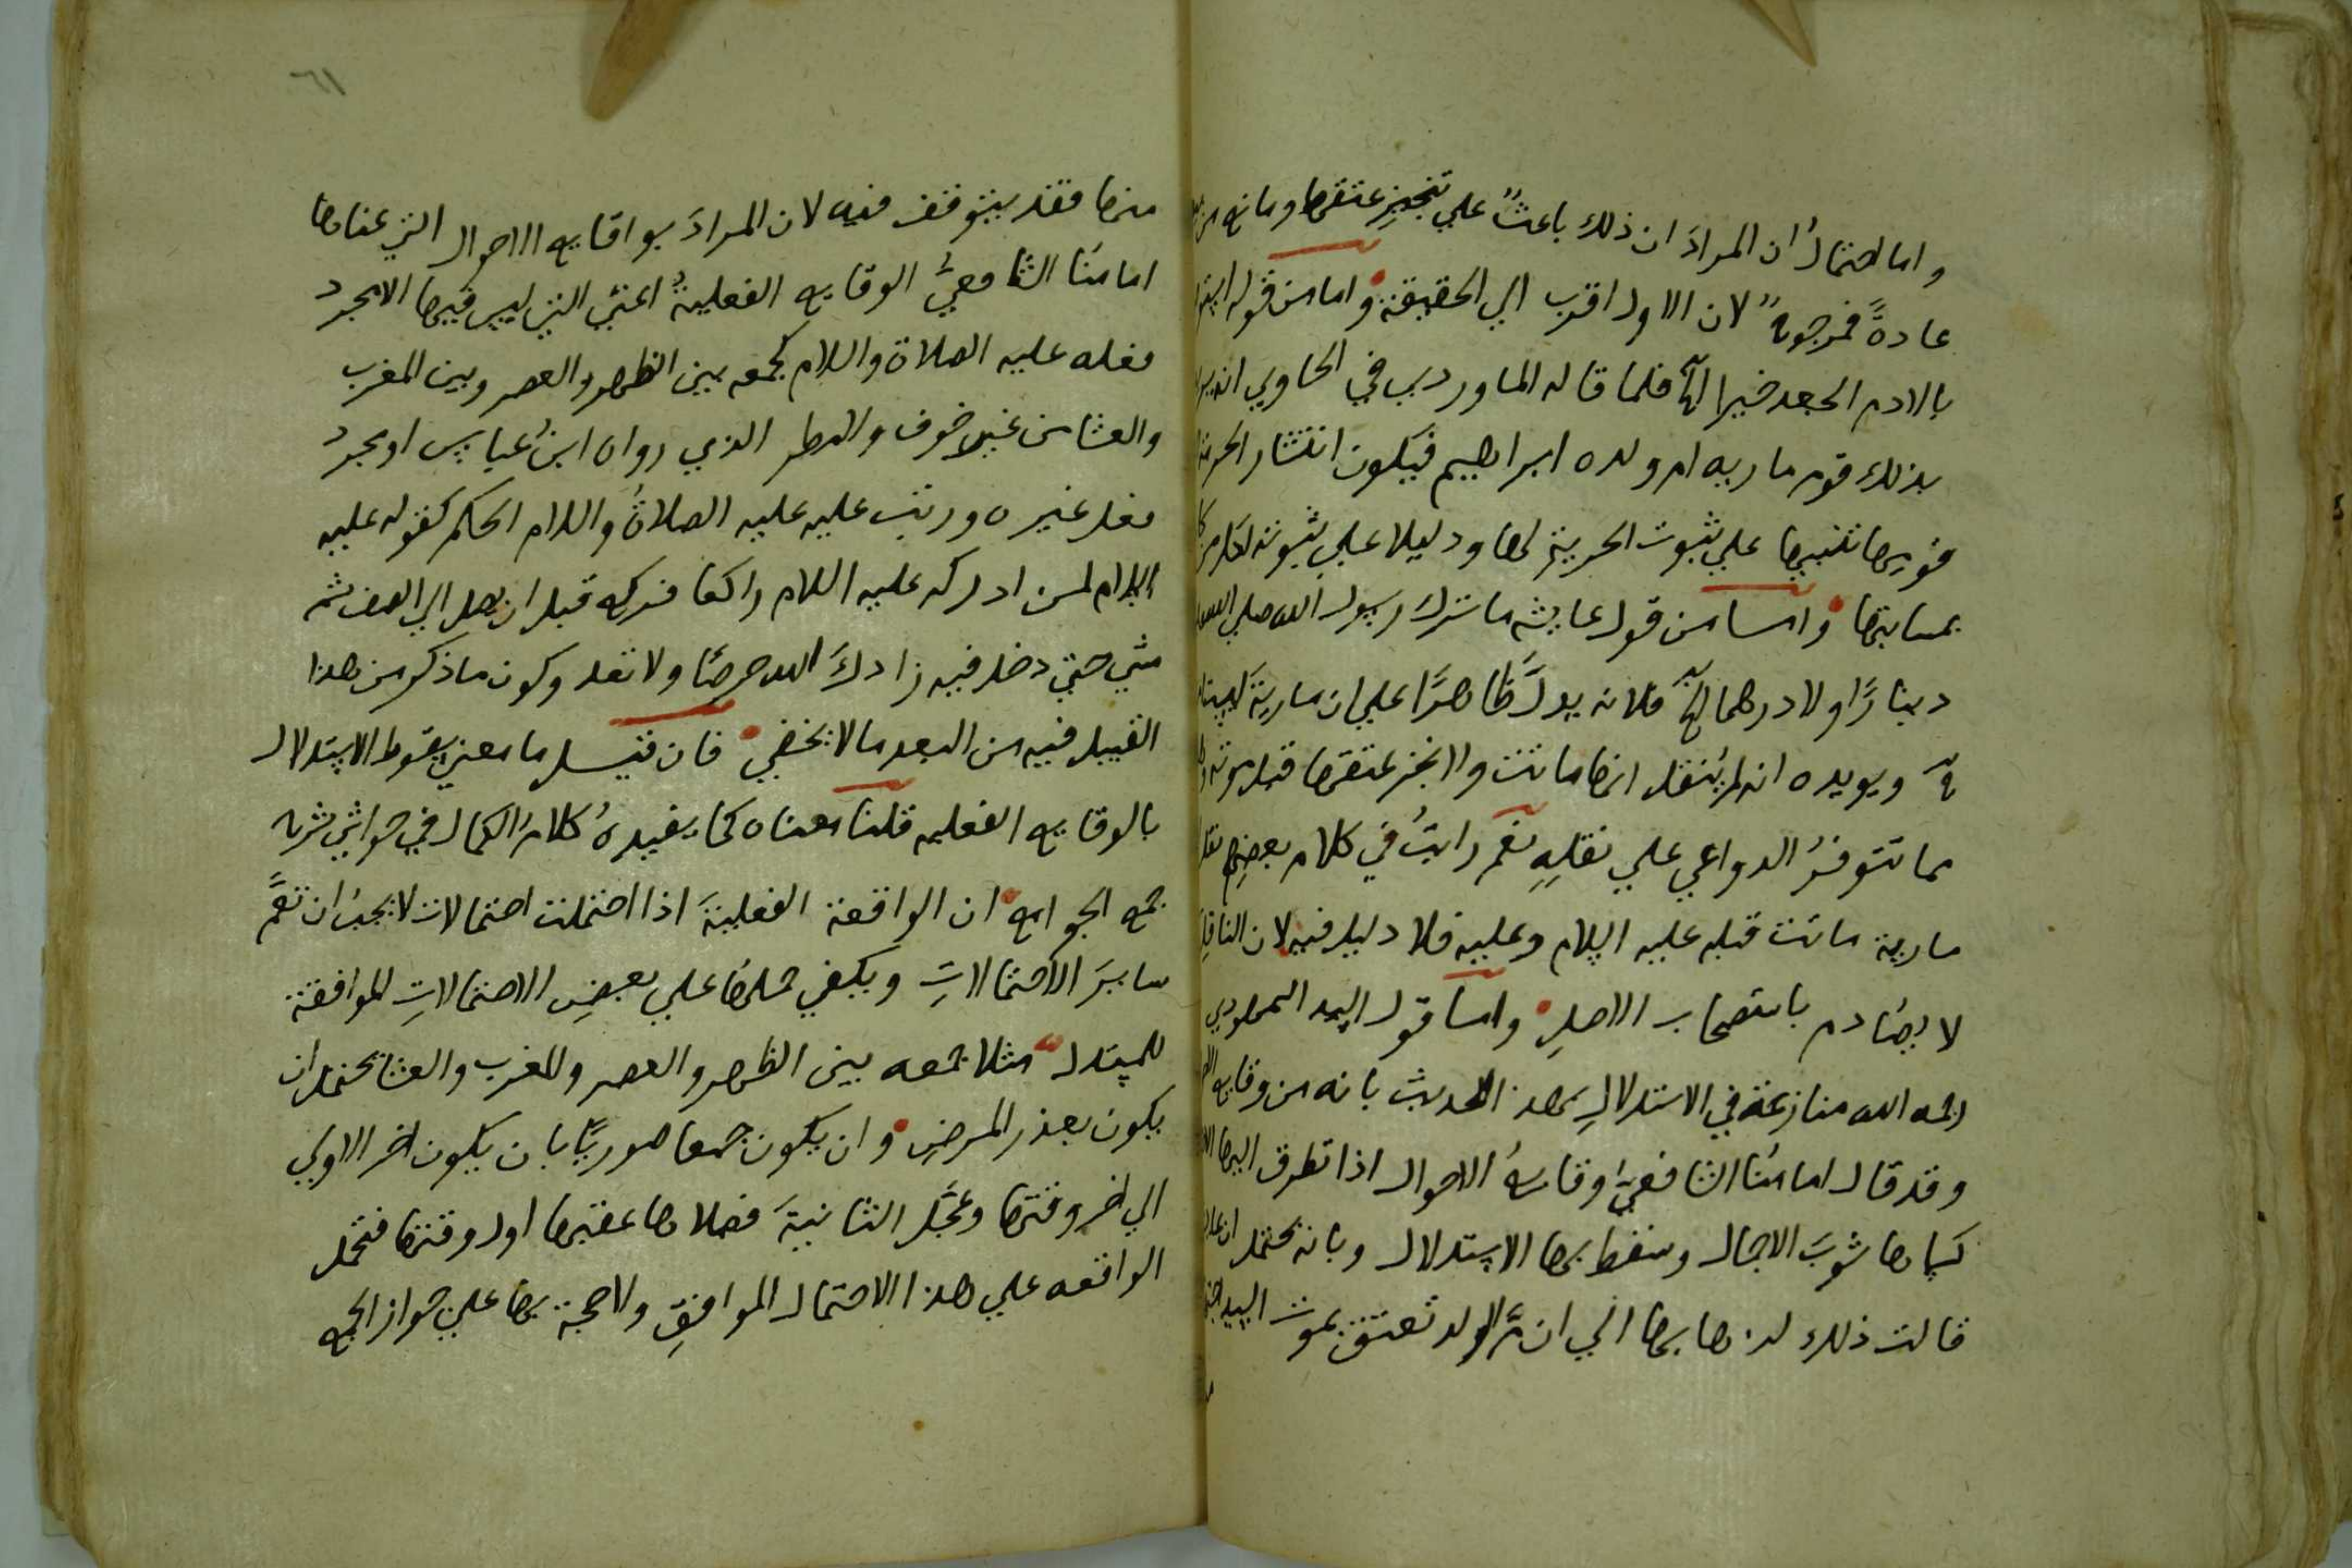 واما احتمالُ ان المرادَ ان ذلك باعثٌ علي تنجيزِ عتقها ومانع من
عادةً فمرجوحٌ لان الاول اقرب الي الحقيقة واما من قوله
بالادم الجعد خيرا الخ فلما قاله الماوردي في الحاوي انه
بذلك قوم ماريه ام ولده ابراهيم فيكون انتشار الحرية
قومها تنبيها علي ثبوت الحرية لها ودليلا علي ثبوته لكل من
بمثابتها واما من قول عايشه ما ترك رسول الله صلي الله
دينارًا ولا درهما الخ فلانه يدلُّ ظاهرًا علي ان مارية ليست
ويويده انه لم يُنقل انها ماتت والا نجز عتقها قبل موته
مما تتوفرُ الدواعي علي نقلِهِ نعم رايتُ في كلام بعضِهم نقل
مارية ماتت قبله عليه السلام وعليه فلا دليل فيه لان الناقل
لا يصادم باستصحاب الاصلِ واما قول السيد السمهودي
رحمه الله منازعة في الاستدلالِ بهذا الحديث بانه من وقايع
وقد قال امامُنا الشافعيُ وقايعُ الاحوال اذا تطرق اليها
كساها ثوبَ الاجمال وسقط بها الاستدلال وبانه يحتمل ان
قالت ذلك لذهابها الي ان امَّ الولد تعتق بموت السيد
منها فقد يتوقف فيه لان المرادَ بوقايع الاحوال التي عناها
امامُنا الشافعيُّ الوقايع الفعليةُ اعني التي ليس فيها الا مجرد
فعله عليه الصلاة والسلام كجمعه بين الظهر والعصر وبين المغرب
والعشا من غير خوف ولا مطر الذي رواه ابنُ عباس او مجرد
فعل غيره ورتب عليه عليه الصلاةُ والسلام الحكم كقوله عليه
السلام لمن ادركه عليه السلام راكعا فركع قبل ان يصل الي الصف ثم
مشي حتي دخل فيه زادكَ الله حرصًا ولا تعد وكون ما ذكر من هذا
القبيل فيه من البعد ما لا يخفي فان قيل ما معني سقوط الاستدلال
بالوقايع الفعليه قلنا معناه كما يفيده كلامُ الكمال في حواشي شرح
جمع الجوامع ان الواقعة الفعليةَ اذا احتملت احتمالات لا يجبُ ان تعمَّ
سايرَ الاحتمالاتِ ويكفي حملها علي بعضِ الاحتمالاتِ الموافقة
للمستدل مثلا جمعه بين الظهر والعصر والمغرب والعشا يحتمل ان
يكون بعذر المرضِ وان يكون جمعا صوريًّا بان يكون اخر الاولي
الي اخر وقتها وعجَّل الثانيةَ فصلاها عقبها اول وقتها فتحمل
الواقعه علي هذا الاحتمال الموافقِ ولا حجة بها علي جواز الجمع